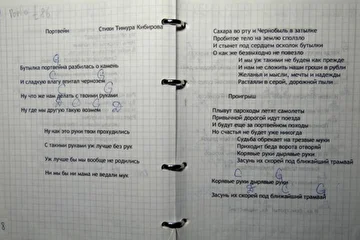 Портвейн Стихи Тимура Кибирова
G
Бутылка портвейна разбилась о камень
C G
И сладкую влагу впитал чернозём
Ну что же нам делать с твоими руками
G D
Ну где мы другую такую возьмём
Ну как это руки твои прохудились
С такими руками уж лучше без рук
Уж лучше бы мы вообще не родились
Ни мы бы ни мама не ведали мук
8
Сахара во рту и Чернобыль в затылке
Пробитое тело на землю сползло
И стынет под сердцем осколок бутылки
О как же безвыходно не повезло
И мы уж такими не будем как прежде
И нам не сложить наши гроши в рубли
Желанья и мысли, мечты и надежды
Растаяли в серой, дорожной пыли
Проигрыш
Плывут пароходы летят самолеты
Привычной дорогой идут поезда
И будут еще за портвейном походы
Но счастья не будет уже никогда
Судьба обрекает на трезвые муки
Приходит беда ворота отворяй
Корявые руки дырявые руки
Засунь их скорей под ближайший трамвай
C G
Корявые руки дырявые руки
C G
Засунь их скорей под ближайший трамвай